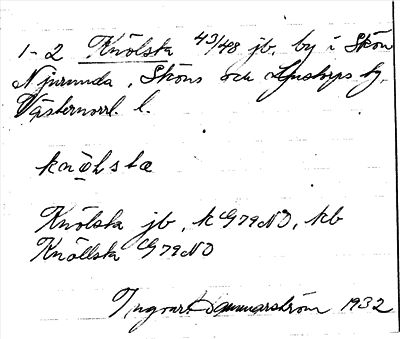 1-2 Knölsta 43/48 jb. by i Sköns
Njurunda, Sköns och Ljustorps tg,
Västernorrl. l.
knölsta
Knölsta jb, k G79NO, kb
Knöllsta G79NO
Ingvar Hammarström 1932